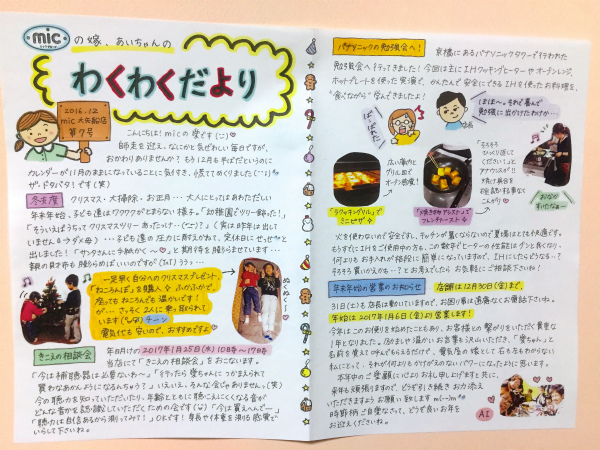 mic の嫁、あいちゃんの
わくわくだより
2016.12
mic 大矢船店
第7号
こんにちは！micの愛です(ニコ)
師走を迎え、なにかと気ぜわしい毎日ですが、
おかわりありませんか？もう12月も半ばだというのに
カレンダーが11月のままになっていることに気付き、慌ててめくりました
ザ・ドタバタ！です(笑)
冬支度
クリスマス・大掃除・お正月…大人にとってはあわただしい
年末年始、子ども達はワクワクがとまらない様子。「幼稚園でツリー飾った！」
「そういえばうちってクリスマスツリーあったっけ？」(実は昨年は出して
いません →ダメ母)…子ども達の圧力に耐えかねて、定休日にせっせと
出しました！「サンタさんに手紙かく〜」と期待を膨らませています…
親の財布も膨らめばいいのですが(ToT)…
一足早く自分へのクリスマスプレゼント、
「ねころんぼ」を購入 ふかふかで、
座ってもねころんでも温かいです！
が…さっそく2人に乗っ取られて
います チーン
電気代も安いので、おすすめですよ
ぬくぬく〜
きこえの相談会
年明けの2017年1月25日(水)10時〜17時
当店にて「きこえの相談会」をおこないます。
「今は補聴器は必要ないわ〜」「そやったら愛ちゃんにつかまえられて
買わなあかんようになるんちゃう？」いえいえ。そんな会じゃありません。(笑)
今の聴力を知っていただいたり、年齢とともに聴こえにくくなる音が
どんな音かを認識していただくための会です「今は買えへんで〜」
「聴力は自信あるから測ってみて！」OKです！身長や体重を測る感覚で
いらして下さいね。
パナソニックの勉強会へ！
京橋にあるパナソニックタワーで行われた
勉強会へ行ってきました！今回は主にIHクッキングヒーターやオーブンレンジ、
ホットプレートを使った実演で、かんたんで安全にできるIHを使ったお料理を、
"食べながら"学んできましたよ！
広い庫内と
グリル皿で
オーブン感覚！
「ラクッキングリル」で
ミニピザ
「焼きがアシスト」で
フレンチトースト
「そろそろ
ひっくり返して
ください」と
アナウンスが！！
おなか
すいたなぁ〜
火を使わないので安全ですし、キッチンが暑くならないので夏場はとても快適です。
もうすでにIHをご使用中の方も、この数年でヒーターの性能はグンと良くなり、
何よりもお手入れが格段に簡単になっていますので、IHにしたらどうなる…？
そろそろ買いかえかも…？とお考えでしたらお気軽にご相談下さいね！
年末年始の営業のお知らせ
店舗は12月30日(金)まで、
31日(土)も店長は動いていますので、お困り事は遠慮なくお電話下さいね。
年始は2017年1月6日(金)より営業します！
今年はこのお便りを始めたこともあり、お客様との繋がりをいただく貴重な
1年となりました。励ましや温かいお言葉を沢山いただき、「愛ちゃん」と
名前を覚えて呼んでもらえるだけで、電気屋の嫁として右も左もわからない
私にとって、それが何よりもかけがえのないパワーになったように思います。
本年中のご愛顧に心よりお礼申し上げますと共に、
来年も頑張りますので、どうぞ引き続きお力添え
いただきますようお願い致しますm(--)m
時節柄ご自愛なさって、どうぞ良いお年を
お迎えくださいね。
AI